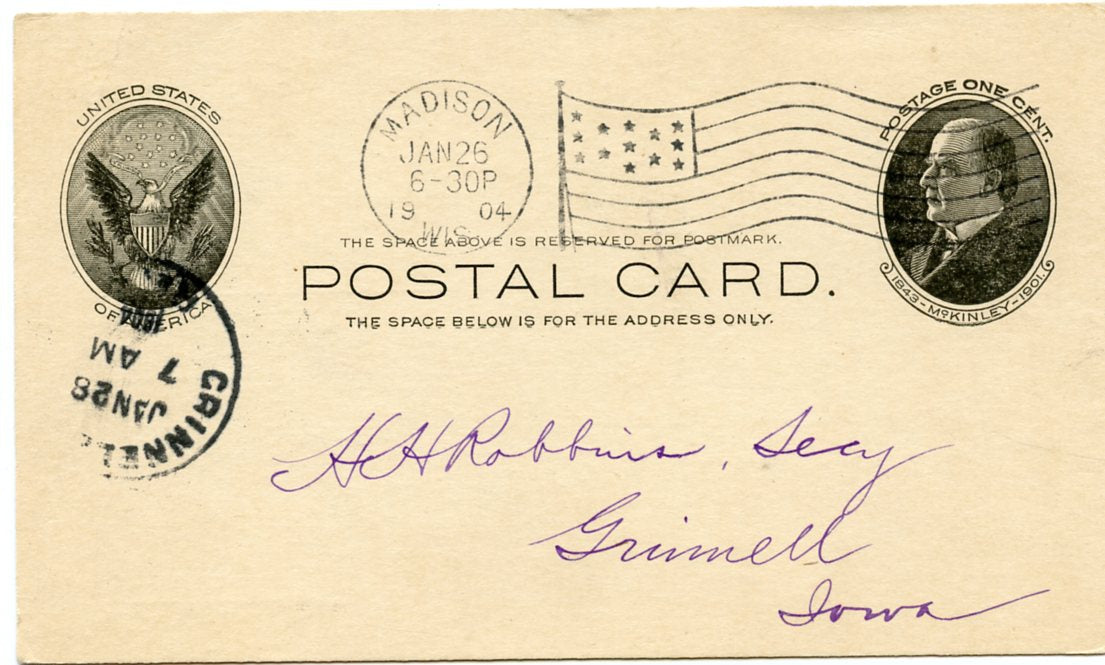 UNITED STATES
OF AMERICA
MADISON
JAN 26
6-30P
19 04
WIS.
POSTAGE ONE CENT.
1843-McKINLEY-1901.
THE SPACE ABOVE IS RESERVED FOR POSTMARK.
POSTAL CARD.
THE SPACE BELOW IS FOR THE ADDRESS ONLY.
GRINNELL
JAN 28
7 AM
1904
H H Robbins, Secy
Grinnell
Iowa